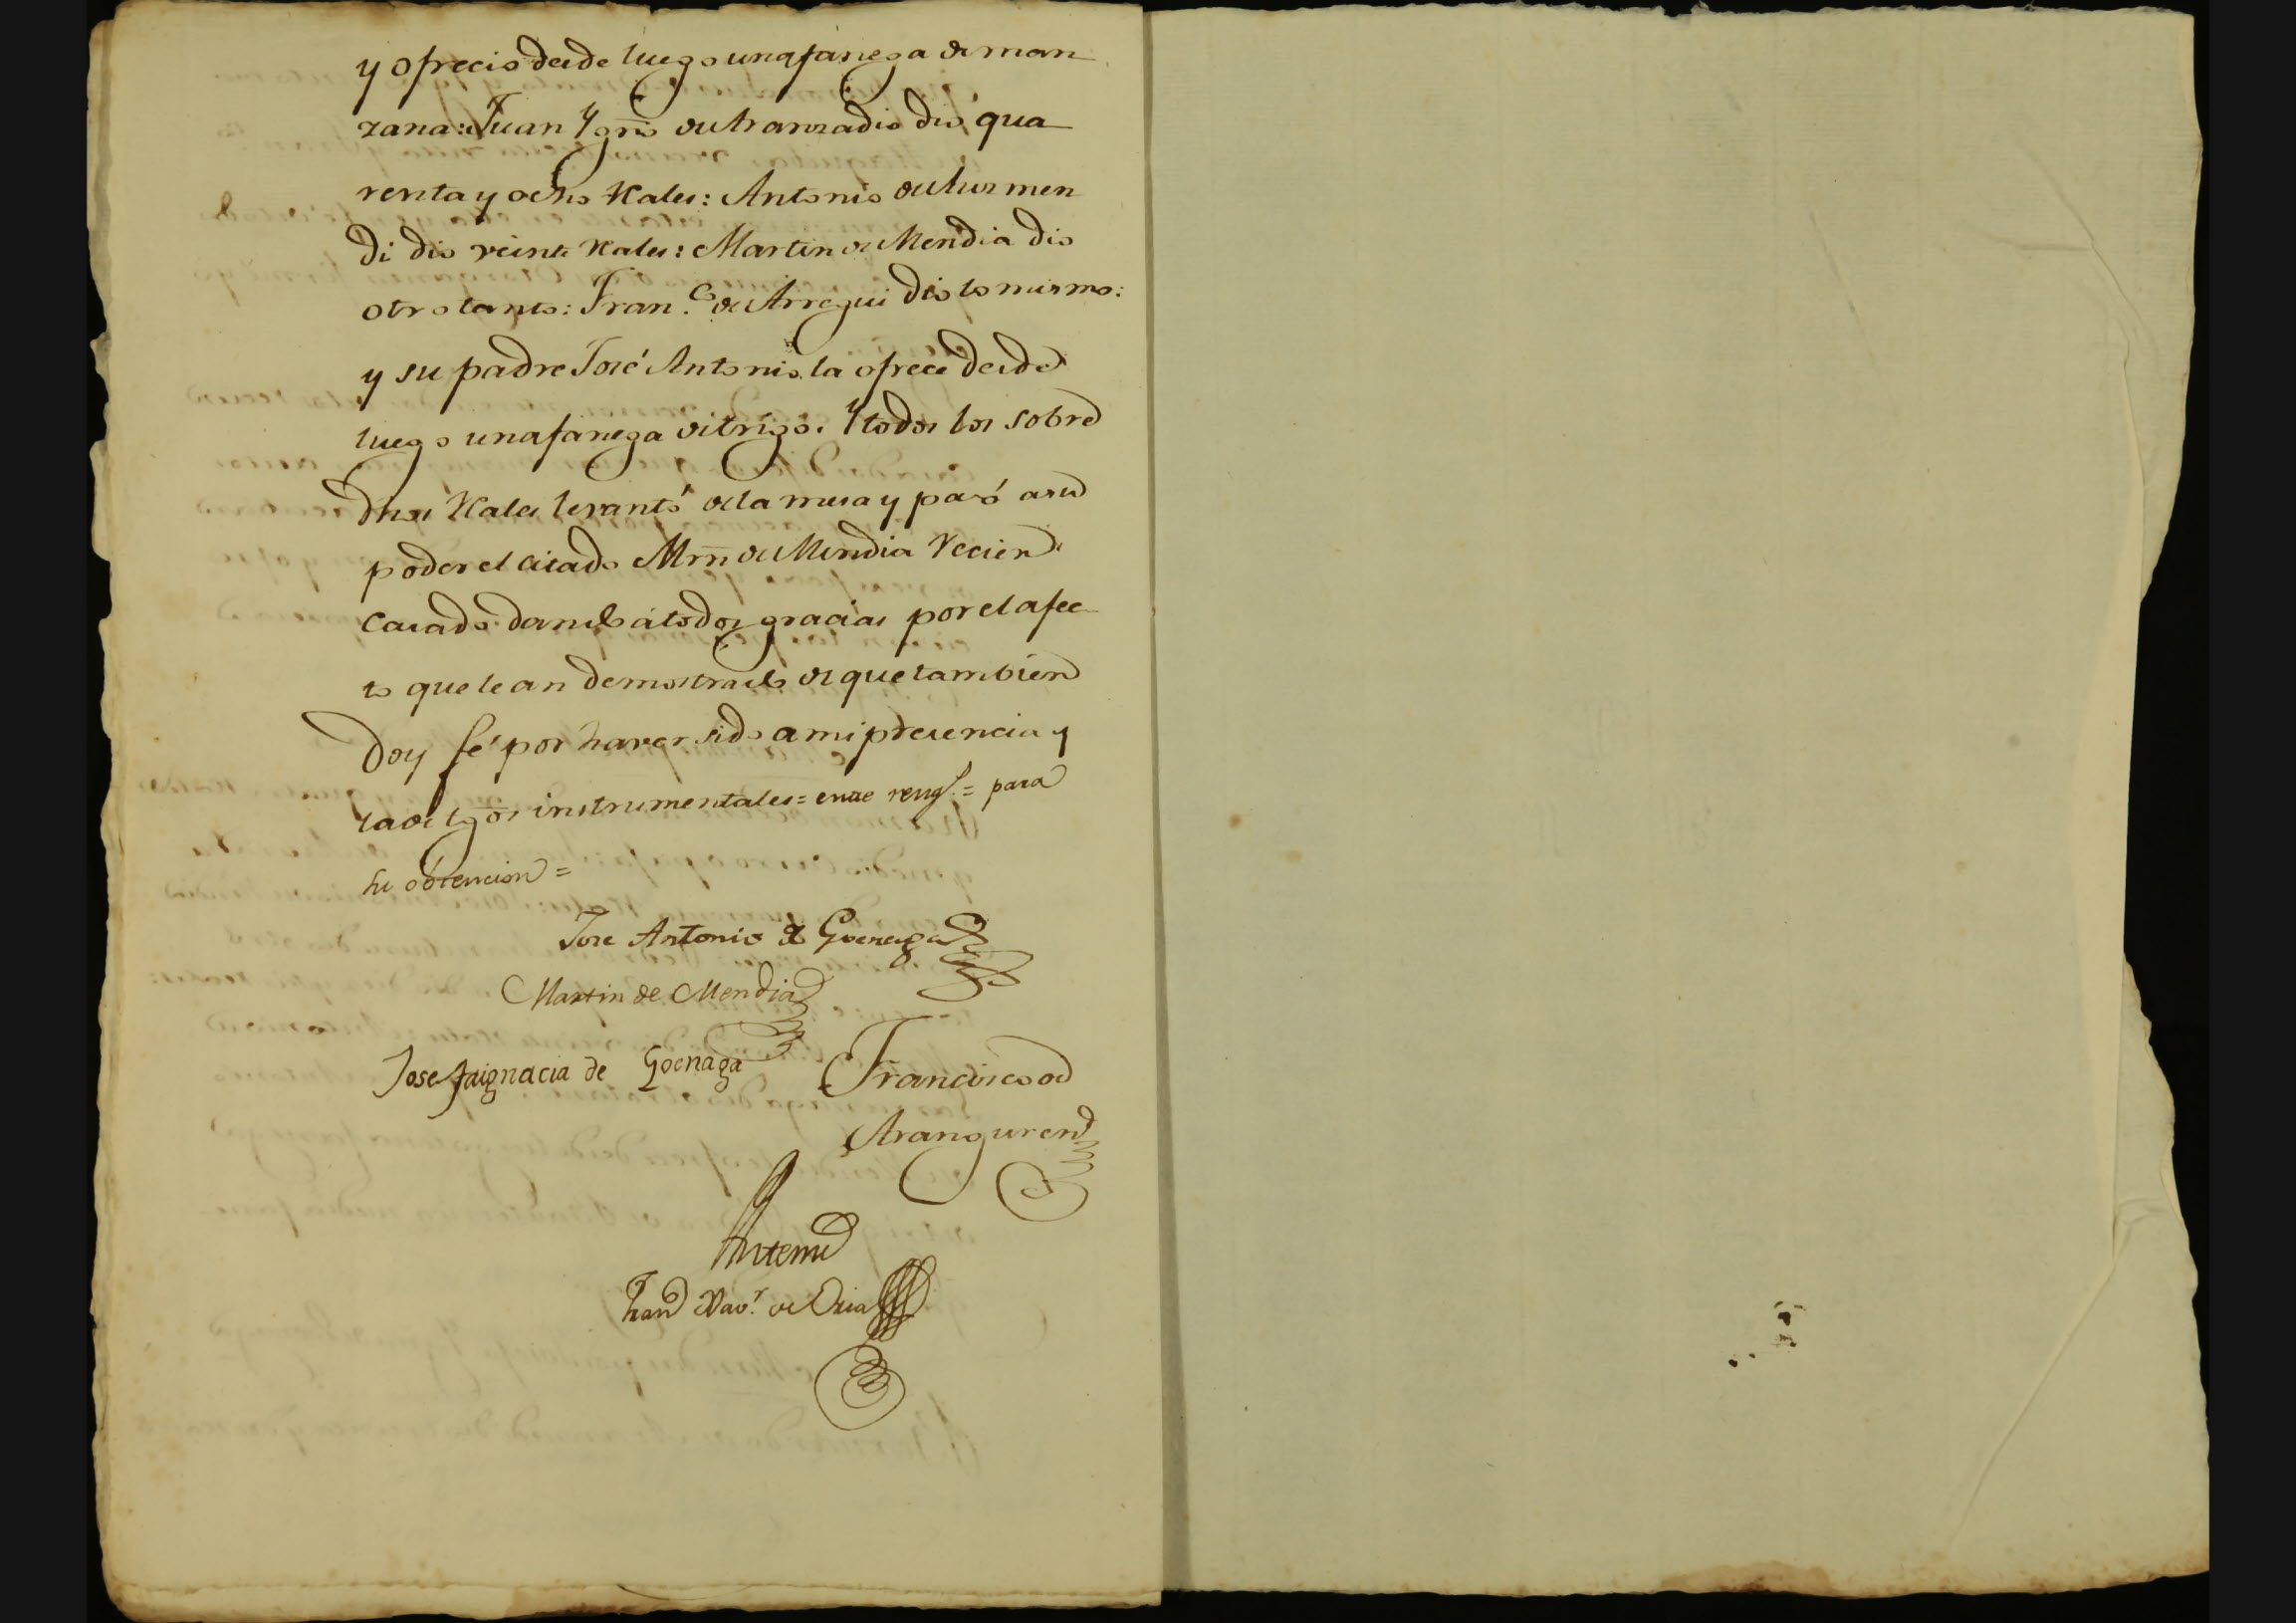 y ofrecio desde luego una fanega de man
zana: Juan Ygnº de Aranzadi dio qua
renta y ocho Rales: Antonio de Aurmen
di dio veinte Rales: Martin de Mendia dio
otro tanto: Fran.co de Arregui dio lo mismo:
y su padre José Antonio la ofrece desde
luego una fanega de trigo. Y todos los sobre
dhos Rales levantó de la mesa y pasó a su
poder el citado Mrn de Mendia Recien
casado dando á todos gracias por el afec
to que le an demostrado de que tambien
doy fé por haver sido a mi presencia y
la de tgos instrumentales = entre rengs. = para
su obtencion =
Jose Antonio de Goenaga
Martin de Mendia
Josefa ignacia de Goenaga
Francisco de
Aranguren
Ante mi
Xav.r de Oria